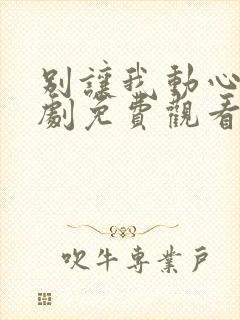 別讓我動心
劇免費觀看
吹牛專業戶